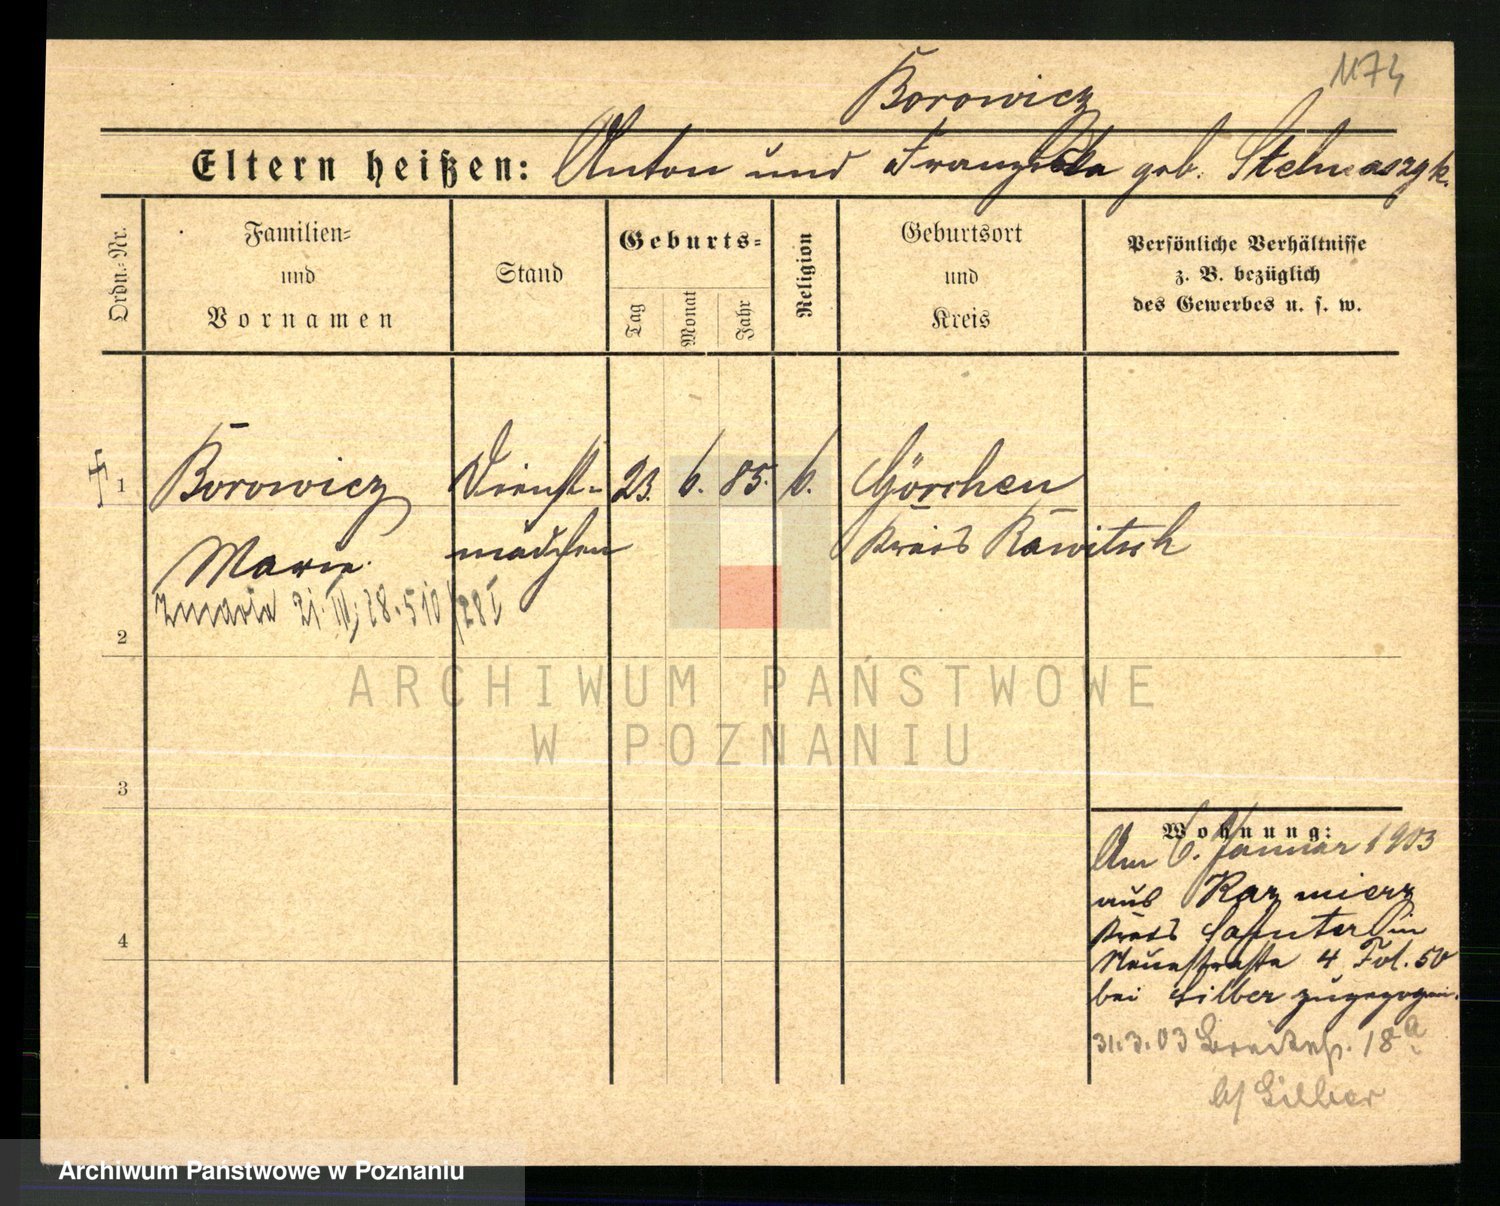 1174
Borowicz
Eltern heißen: Anton und Franziska geb. Stelmaszyk.
Ordn.-Nr.
Familien-
und
Vornamen
Stand
Geburts-
Tag
Monat
Jahr
Religion
Geburtsort
und
Kreis
Persönliche Verhältnisse
z. B. bezüglich
des Gewerbes u. s. w.
1
Borowicz
Marie.
Dienst-
mädchen
23. 6. 85.
Görchen
Kreis Rawitsch
zmarła 21. IV. 28. 510/28 I
2
3
4
ARCHIWUM PAŃSTWOWE
W POZNANIU
Wohnung:
Am 6. Januar 1903
aus Kazmierz
Kreis Samter in
Neuestraße 4 Fol. 50
bei Silber zugezogen.
31.3.03 Breitestr. 18a
b/ Silber
Archiwum Państwowe w Poznaniu